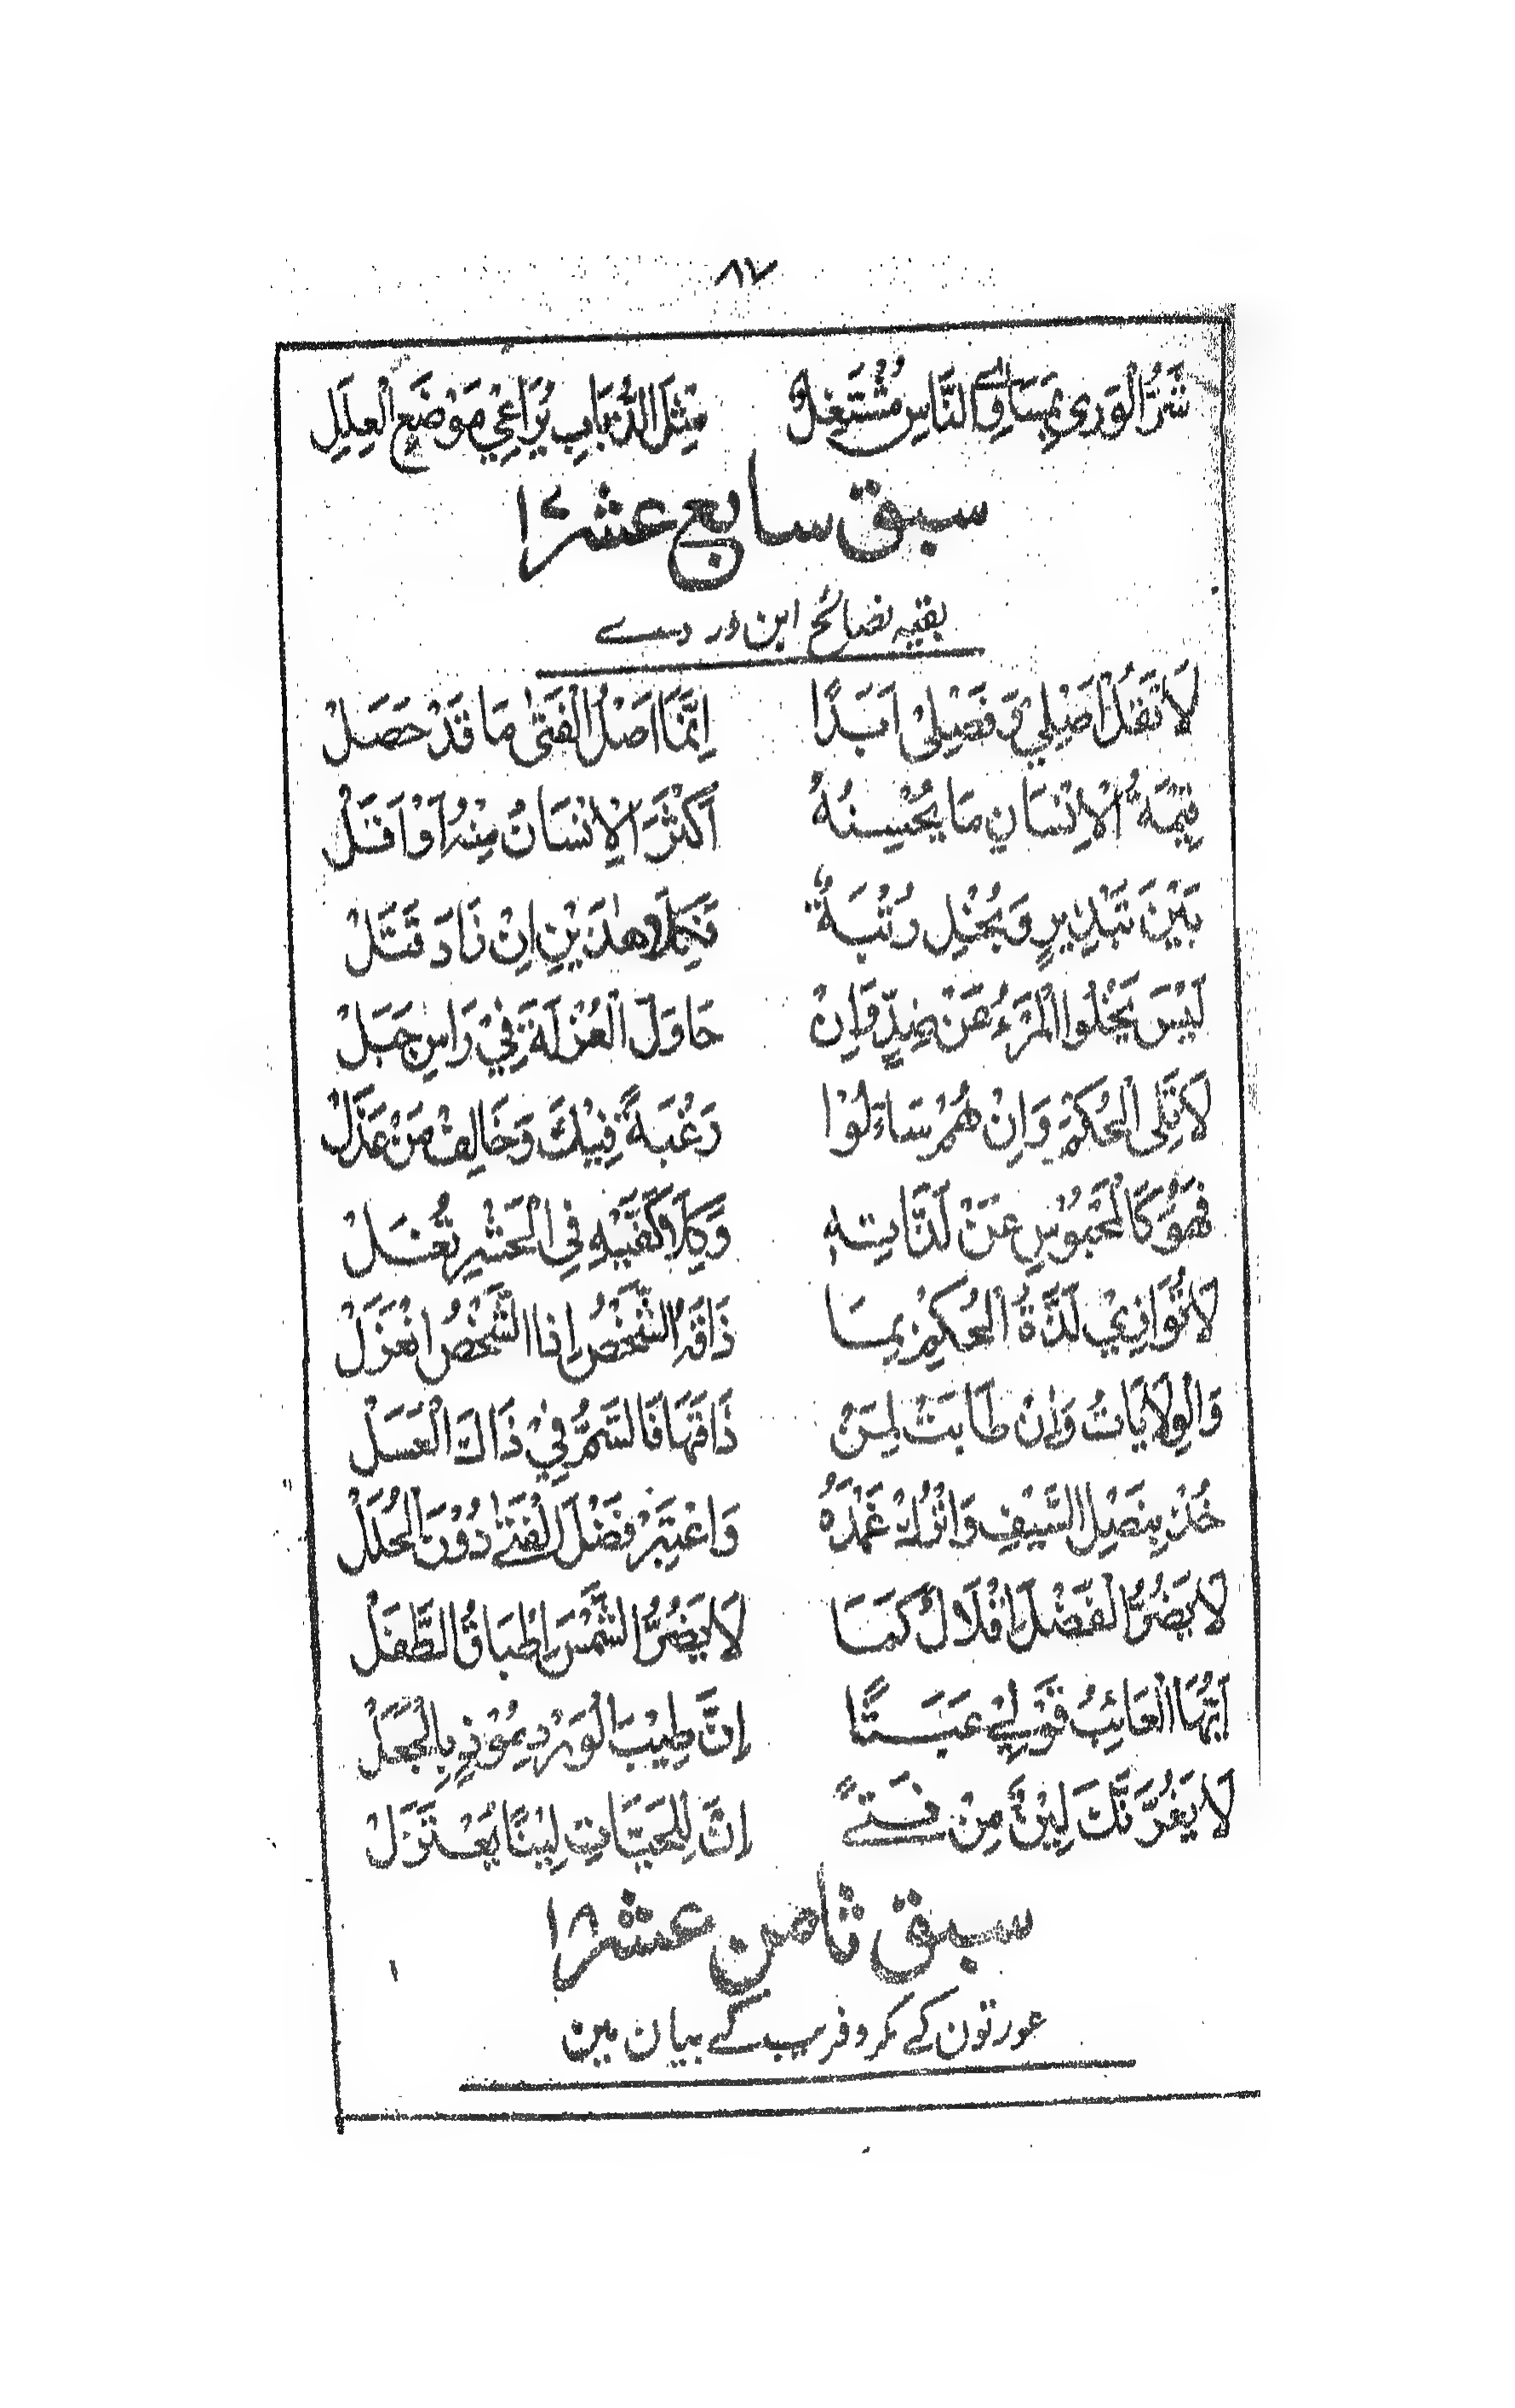 ۸۷
شَرُّ الْوَرٰی بِمَسَاوِی النَّاسِ مُشْتَغِلٌ مِثْلَ الذُّبَابِ يُرَاعِيْ مَوْضَعَ الْعِلَلِ
سبق سابع عشر ۱۷
بقیہ نصائح ابن وردے
لَا تَقُلْ اَصْلِيْ وَ فَصْلِيْ اَبَدًا اِنَّمَا اَصْلُ الْفَتٰی مَا قَدْ حَصَلْ
قِيْمَةُ الْاِنْسَانِ مَا يُحْسِنُهُ اَكْثَرَ الْاِنْسَانُ مِنْهُ اَوْ اَقَلْ
بَيْنَ تَبْذِيْرٍ وَ بُخْلٍ رُتْبَةٌ فَكِلَا وَهٰذَيْنِ اِنْ زَادَ قَتَلْ
لَيْسَ يَخْلُوا الْمَرْءُ عَنْ ضِدٍّ وَاِنْ حَاوَلَ الْعُزْلَةَ فِيْ رَاسِ جَبَلْ
لَا تَلِی الْحُكْمَ وَاِنْ هُمْ سَاءَلُوْا رَغْبَةً فِيْكَ وَخَالِفْ مَنْ عَذَلْ
فَهُوَ كَالْمَحْبُوْسِ عَنْ لَذَّاتِهٖ وَكِلَا كَفَّيْهِ فِی الْحَشْرِ تُغَلْ
لَا تُوَازِيْ لَذَّةُ الْحُكْمِ بِمَا ذَاقَهُ الشَّخْصُ اِذَا الشَّخْصُ انْعَزَلْ
وَالْوِلَايَاتُ وَاِنْ طَابَتْ لِمَنْ ذَاقَهَا فَالسَّمُّ فِيْ ذَاكَ الْعَسَلْ
خُذْ بِنَصْلِ السَّيْفِ وَاتْرُكْ غَمْدَهُ وَاعْتَبِرْ فَضْلَ الْفَتٰے دُوْنَ الْحُلَلْ
لَا يَضُرُّ الْفَضْلَ اِقْلَالٌ كَمَا لَا يَضُرُّ الشَّمْسَ اِطْبَاقُ الطَّفَلْ
اَيُّهَا الْعَائِبُ قَوْلِیْ عَبَثًا اِنَّ طِيْبَ الْوَرْدِ مُوْذٍ بِالْجُعَلْ
لَا يَغُرَّنَّكَ لِيْنٌ مِنْ فَتًے اِنَّ لِلْحَيَّاتِ لِيْنًا يُعْتَزَلْ
سبق ثامن عشر ۱۸
عورتون کے مکر و فریب کے بیان مین